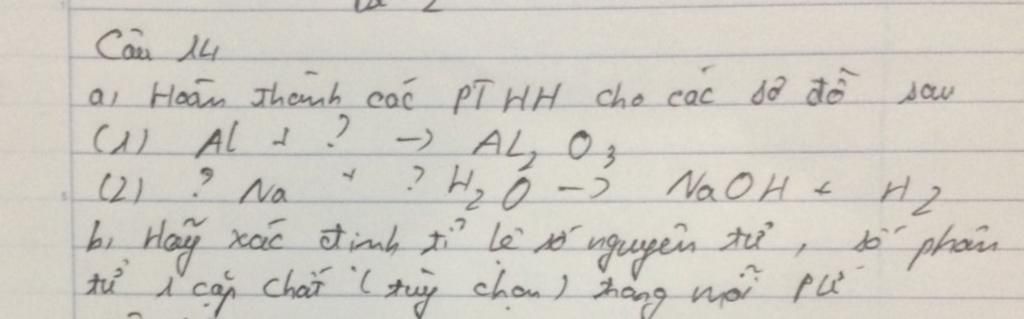 Câu 14
a, Hoàn thành các PTHH cho các sơ đồ sau
(1) Al + ? -> Al2O3
(2) ? Na + ? H2O -> NaOH + H2
b, Hãy xác định tỉ lệ số nguyên tử, số phân
tử 1 cặp chất (tùy chọn) trong mỗi PƯ